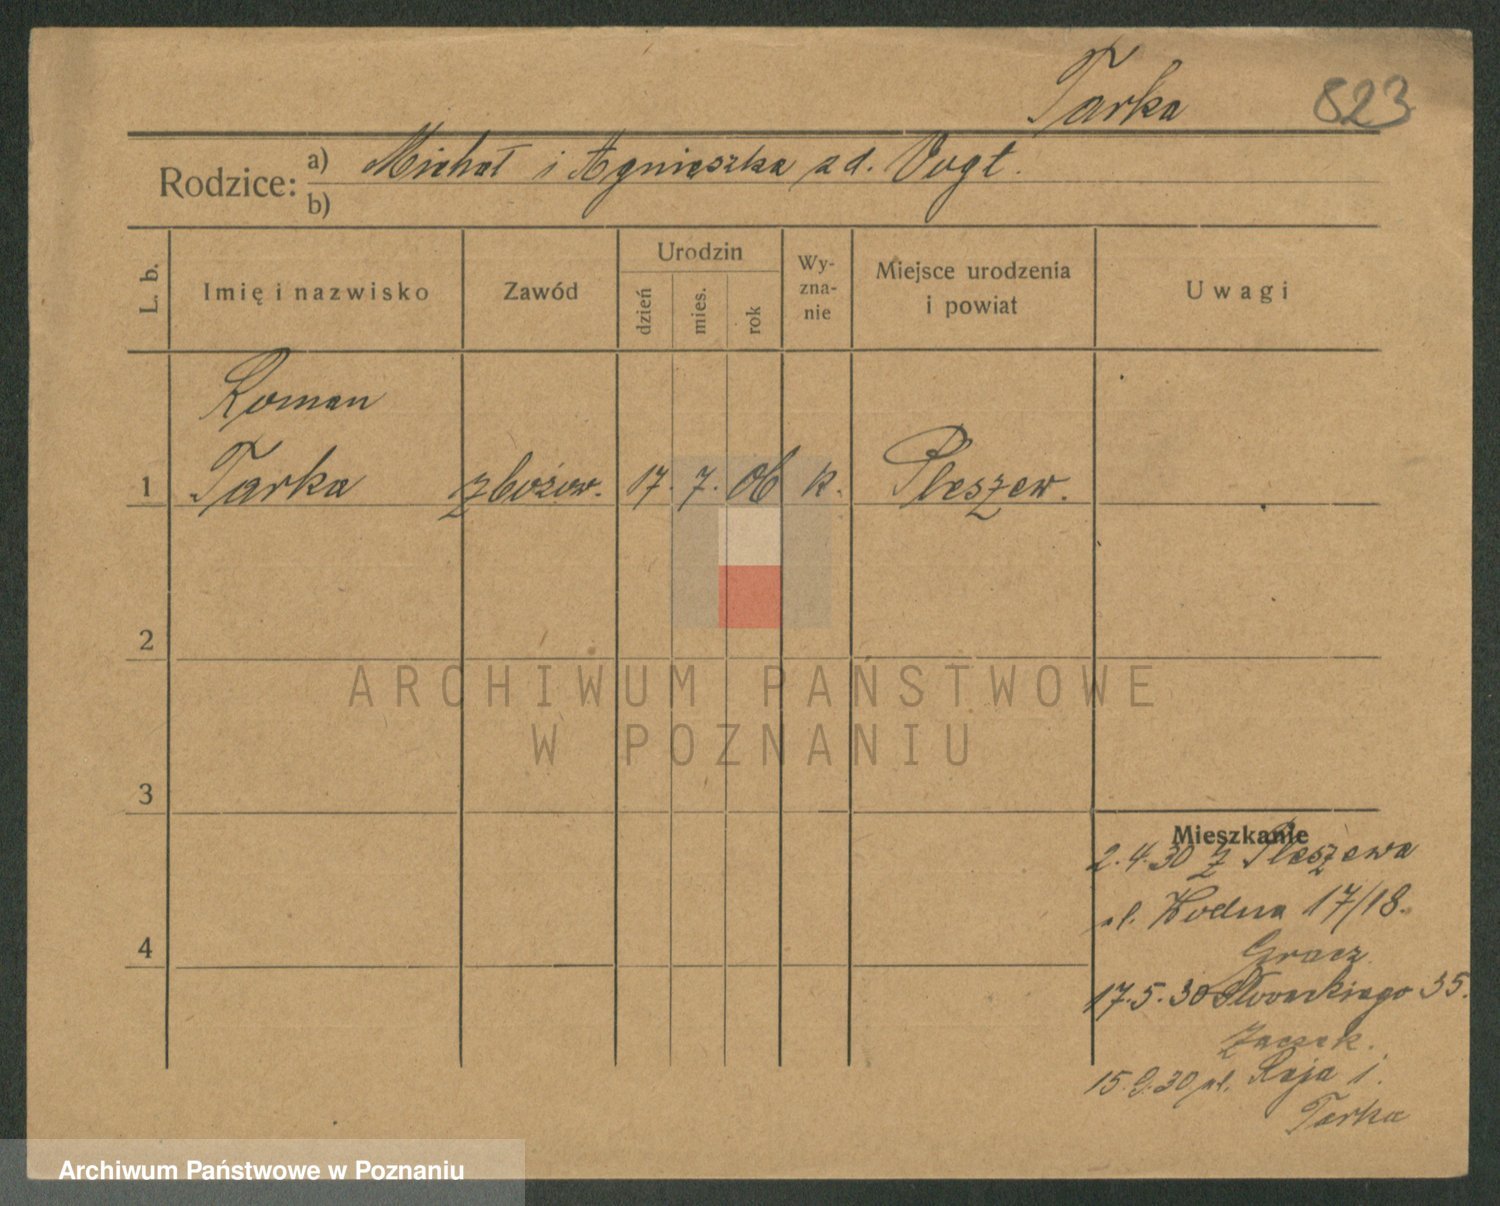 Tarka
823
Rodzice: a) Michał i Agnieszka z d. Vogt.
b)
L. b.
Imię i nazwisko
Zawód
Urodzin
dzień
mies.
rok
Wy-
zna-
nie
Miejsce urodzenia
i powiat
Uwagi
Roman
1 Tarka zbożow. 17. 7. 06 k. Pleszew.
2
ARCHIWUM PAŃSTWOWE
W POZNANIU
3
Mieszkanie
2.4.30 z Pleszewa
4
ul. Wodna 17/18.
Gracz
17.5.30 Słowackiego 35.
15.9.30 pl.
Tarka
Archiwum Państwowe w Poznaniu